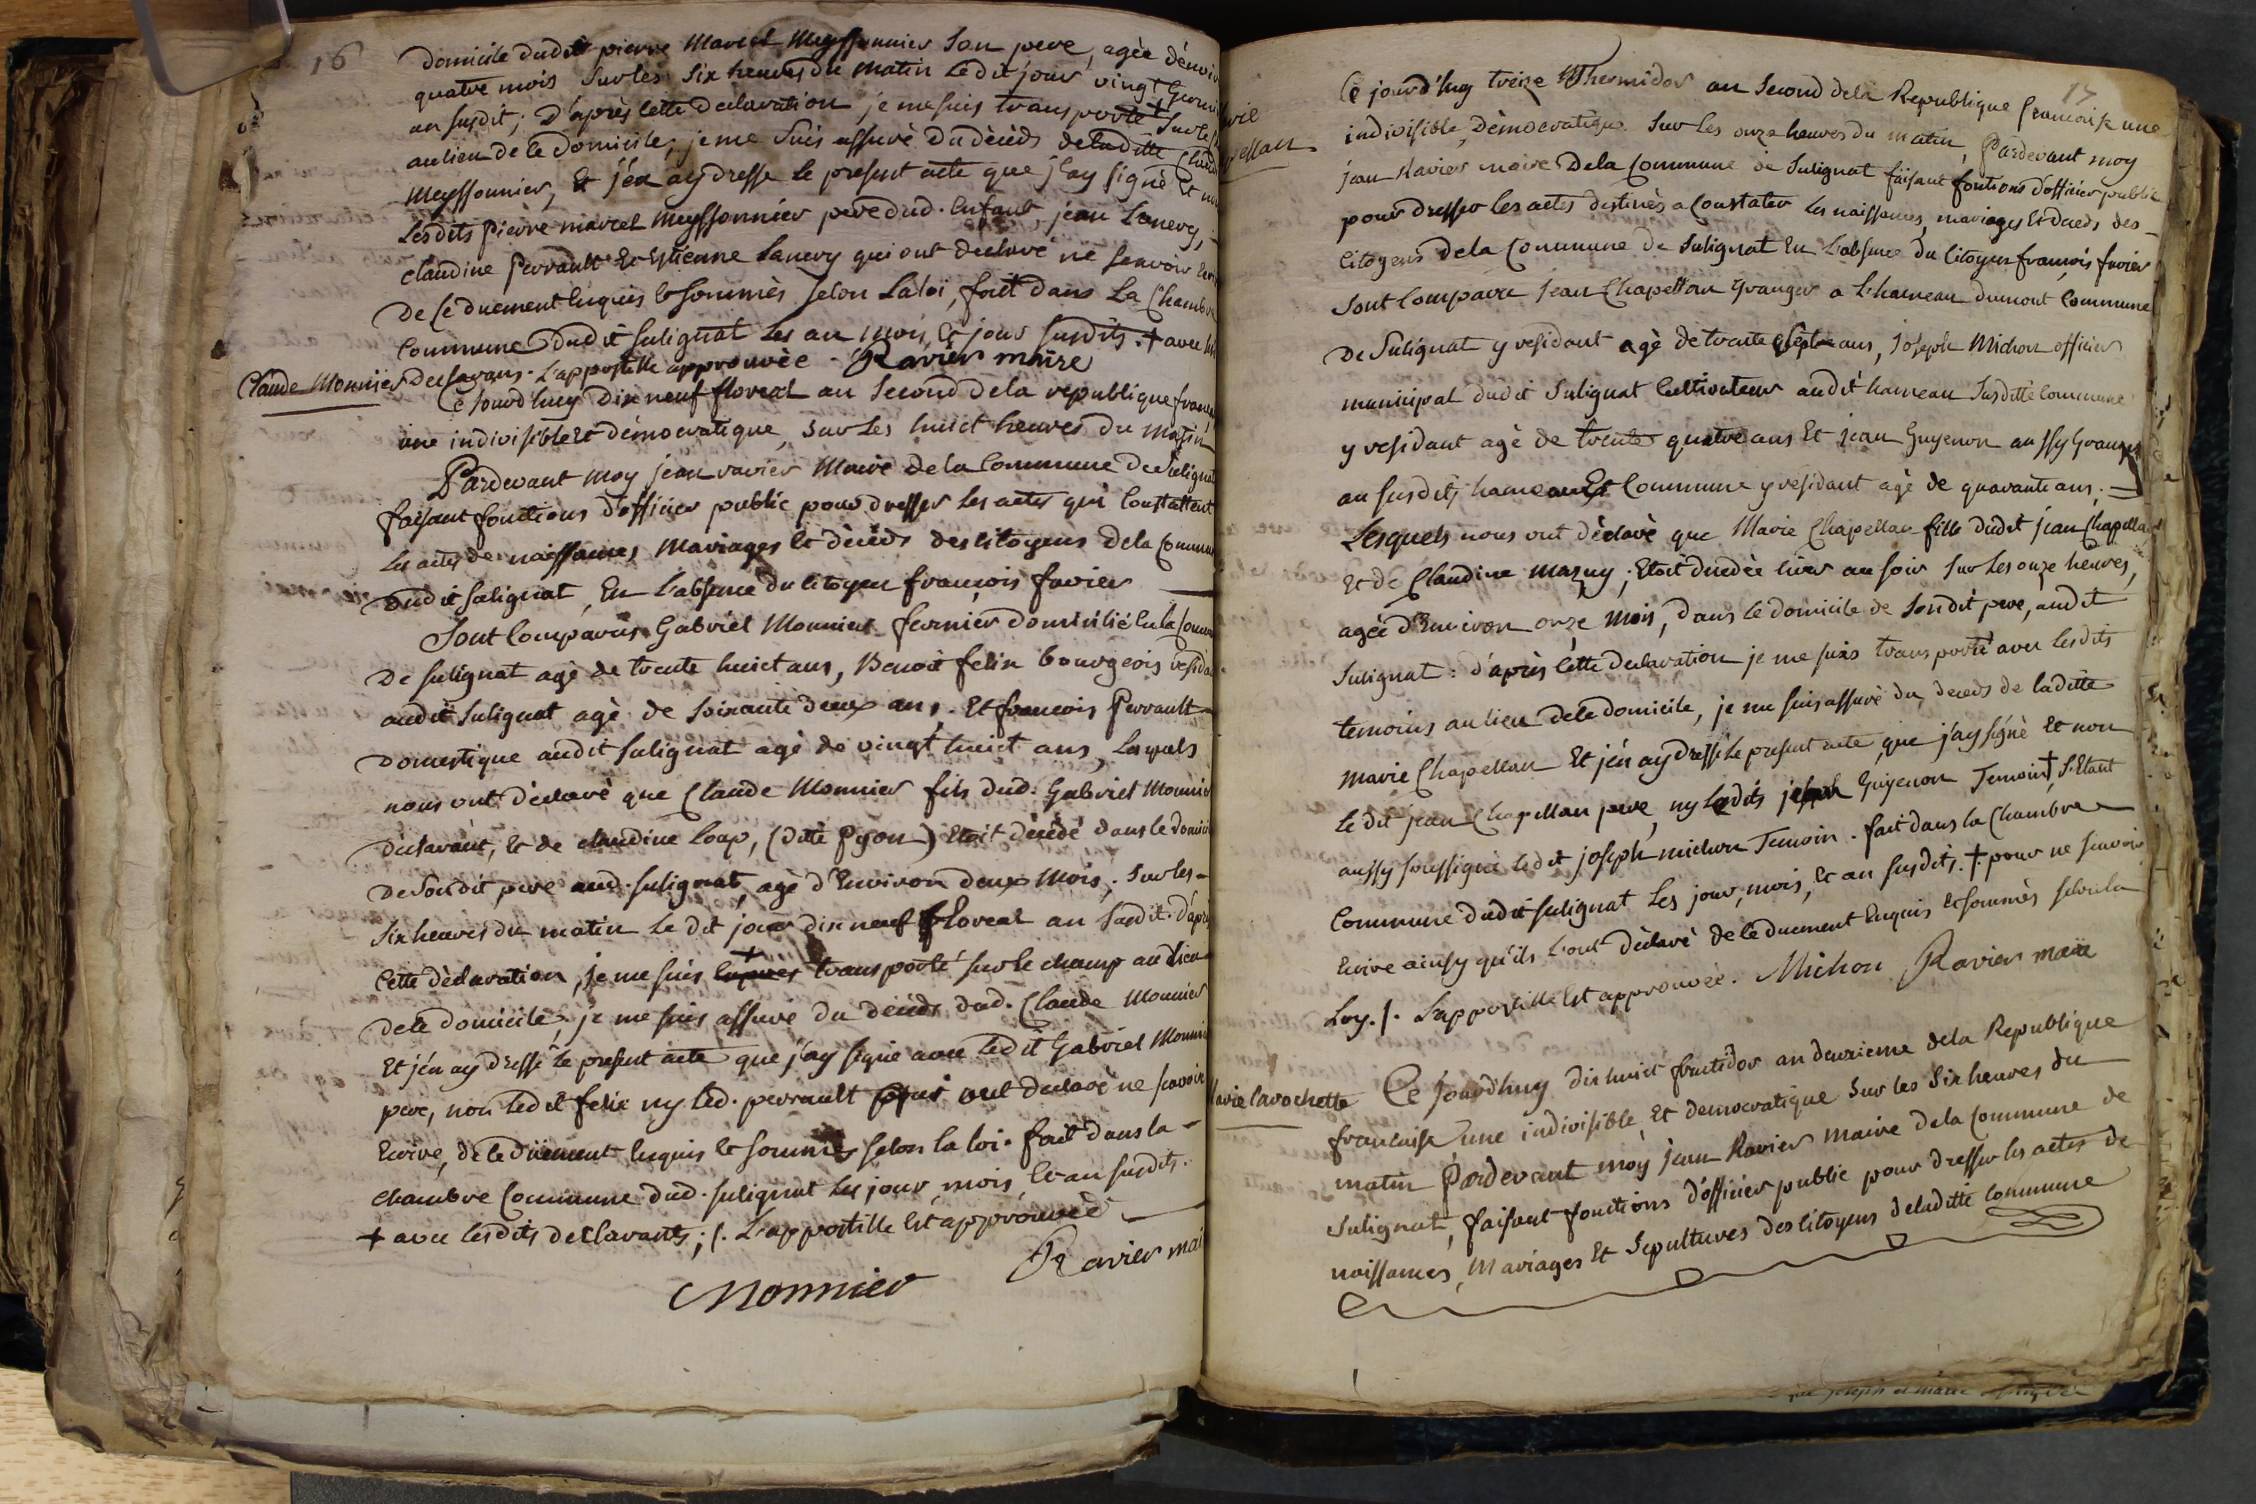 16
domicile dudit pierre Marcel Meyssonnier son pere, agée d'envir
quatre mois sur les six heures du matin le dit jour vingt Germi
an susdit; D'après cette declaration je me suis transporté + sur le
au lieu de ce domicile, je me suis assuré du décèds de laditte
Meyssonnier, Et j'en ay dressé le present acte que j'ay signé Et non
lesdits Pierre marcel Meyssonnier pere dud. Enfant, jean Lanery,
claudine Perrault Et Estienne Lanery qui ont declaré ne scavoir
De Ce duement Enquis et sommés selon la loi, fait dans La Chambre
Commune dudit sulignat les an mois et jour susdits. + avec les
declarans. L'appostille approuvée - Ravier maire
Claude Monnier
Ce jourd'huy Dix neuf floreal an Second de la republique
une indivisible Et démocratique, sur les huict heures du matin
Pardevant moy jean ravier Maire de la Commune de Sulignat
faisant fonctions d'officier public pour dresser les actes qui Constattent
les actes de naissances Mariages et décèds des Citoyens de la Commune
dudit salignat, En L'absence du Citoyen françois favier
Sont Comparus Gabriel Monnier fermier domicilié En la
De sulignat agé de trente huict ans, Benoit felix bourgeois
audit Sulignat agé de soixante deux ans, Et francois Perrault
Domestique audit sulignat agé de vingt huict ans, Lesquels
nous ont déclaré que Claude Monnier fils dud. Gabriel Monnier
déclarant, et de claudine Loup, (ditte Pyon) Etoit décédé dans le
De Son dit pere aud. sulignat, agé d'Environ deux Mois, sur les -
six heures du matin le dit jour dix neuf floreal an susdit. D'après
Cette déclaration, je me suis + transporté sur le champ au lieu
de ce domicile, je me suis assuré du décèds dud. Claude Monnier
Et j'en ay dressé le present acte que j'ay signé avec ledit Gabriel
pere, non ledit felix ny led. perrault qui ont declaré ne scavoir
Ecrire, de ce duement Enquis et sommés selon la loi. fait dans la -
chambre Commune dud. sulignat les jour, mois, et an susdits.
+ avec lesdits declarants; /. L'appostille Est approuvée
Ravier
Monnier
17
Ce jourd'huy treize Thermidor an Second de la Republique francoise une
indivisible Démocratique sur les onze heures du matin, Pardevant moy
jean Ravier maire De la Commune de Sulignat faisant fontions d'officier public
pour dresser les actes destinés a Constater les naissances, mariages Et deceds des -
Citoyens de la Commune de Sulignat En L'absence du Citoyen françois favier
Sont Comparu jean Chapellan Granger a L'hameau dumont Commune
De Sulignat y residant agé de trente sept ans, Joseph Michon officier
municipal dudit Sulignat Cultivateur audit hameau Susditte Commune
y residant agé de trente quatre ans Et jean Guyenon aussy Granger
au susdits hameau Et Commune y residant agé de quarante ans; =
Lesquels nous ont déclaré que Marie Chapellan fille dudit jean Chapellan
Et de Claudine Mazuy; Etoit decedée hier au soir sur les onze heures,
agée d'Environ onze Mois, dans le domicile de Son dit pere, audit
Sulignat: d'après Cette declaration je me suis transporté avec lesdits
temoins au lieu de ce domicile, je me suis assuré du deceds de laditte
Marie Chapellan Et j'en ay dressé le present acte, que j'ay signé Et non
le dit jean Chapellan pere, ny Guyenon Temoin + S'Etant
aussy soussigné ledit joseph michon Temoin. fait dans la Chambre
Commune dudit sulignat Les jour, mois, Et an susdits. + pour ne scavoir
Ecrire ainsy qu'ils L'ont déclaré de Ce duement Enquis Et sommés selon la
Loy. /. L'appostille Est approuvée. Michon Ravier maire
Marie Carochette
Ce jourd'huy dix huict fructidor an deuxieme de la Republique
francaise une indivisible, Et democratique Sur les Six heures du
matin Pardevant moy jean Ravier Maire de la Commune de
Sulignat, faisant fonctions d'officier public pour dresser les actes de
naissances, Mariages Et Sepultures des Citoyens de laditte Commune